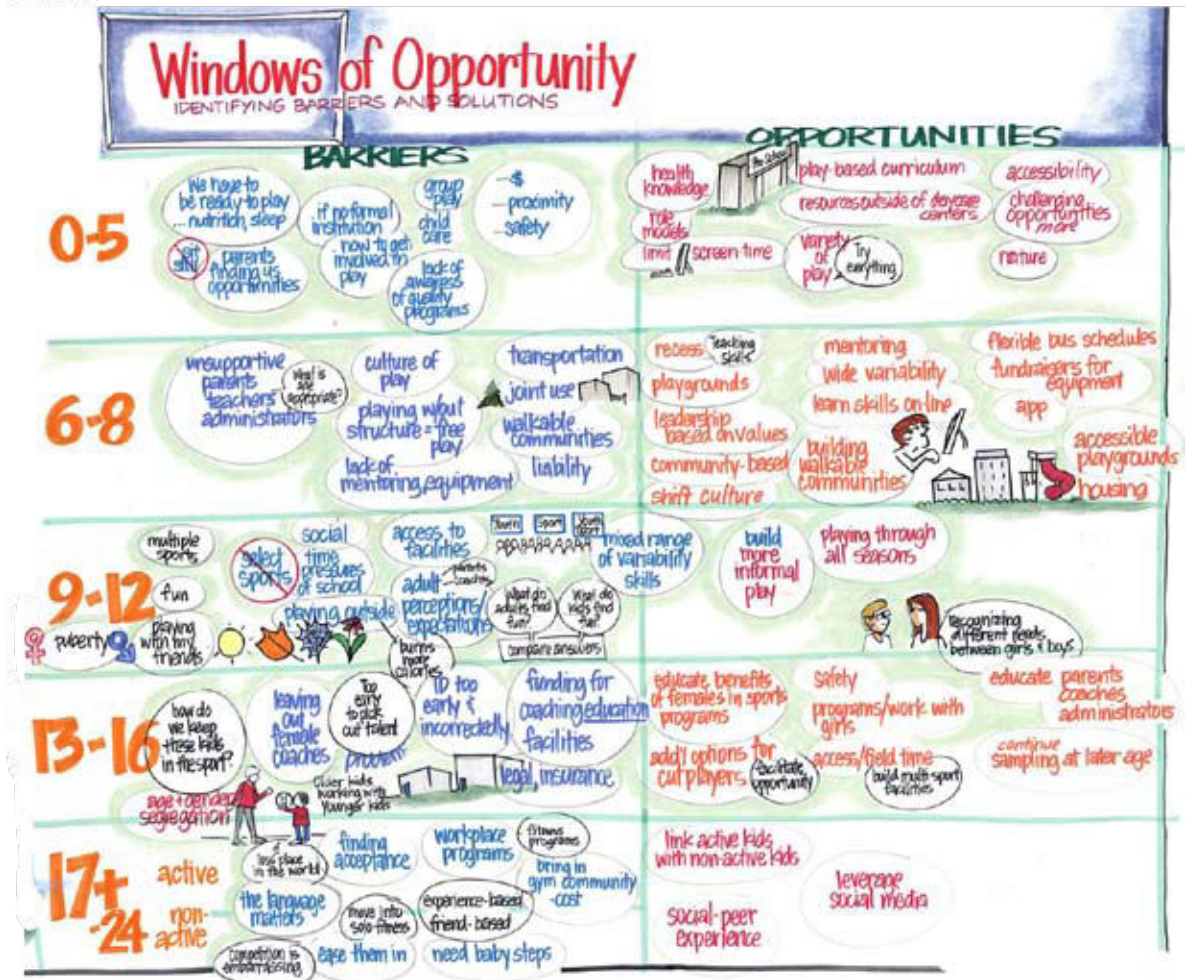 Windows of Opportunity
IDENTIFYING BARRIERS AND SOLUTIONS
BARRIERS
OPPORTUNITIES
0-5
we have to
be ready to play
...nutrition, sleep
sit
still
parents
finding us
opportunities
if no formal
institution
how to get
involved in
play
group
play
child
care
lack of
awareness
of quality
programs
...$
...proximity
...safety
health
knowledge
role
models
limit screen-time
Pre School
play-based curriculum
resources outside of daycare
centers
variety
of
play
Try
everything
accessibility
challenging
opportunities
more
nature
6-8
unsupportive
parents
teachers
administrators
What is
age
appropriate?
culture of
play
playing w/out
structure = free
play
lack of
mentoring, equipment
transportation
joint use
walkable
communities
liability
recess
teaching
skills
playgrounds
leadership
based on values
community-based
shift culture
mentoring
wide variability
learn skills on-line
building
walkable
communities
flexible bus schedules
fundraisers for
equipment
app
accessible
playgrounds
housing
9-12
multiple
sports
fun
puberty
playing
with my
friends
select
sports
social
time
pressures
of school
playing outside
access to
facilities
adult
perceptions/
expectations
parents
coaches
burns
more
calories
Youth
Sport
Youth
Sport
What do
adults find
fun?
What do
kids find
fun?
compare answers
mixed range
of variability
skills
build
more
informal
play
playing through
all seasons
recognizing
different needs
between girls & boys
13-16
how do
we keep
these kids
in the sport?
age + gender
segregation
leaving
out
female
coaches
Too
early
to pick
out talent
problem
Older kids
working with
Younger kids
ID too
early &
incorrectedly
funding for
coaching education
facilities
legal, insurance
educate benefits
of females in sports
programs
add'l options for
cut players
facilitate
opportunity
safety
programs/work with
girls
access/field time
build multi sport
facilities
educate parents
coaches
administrators
continue
sampling at later age
17+
-24
active
non-
active
loss place
in the world
the language
matters
competition is
embarrassing
finding
acceptance
move into
solo-fitness
ease them in
workplace
programs
experience-based
friend-based
need baby steps
fitness
programs
bring in
gym community
-cost
link active kids
with non-active kids
social-peer
experience
leverage
social media